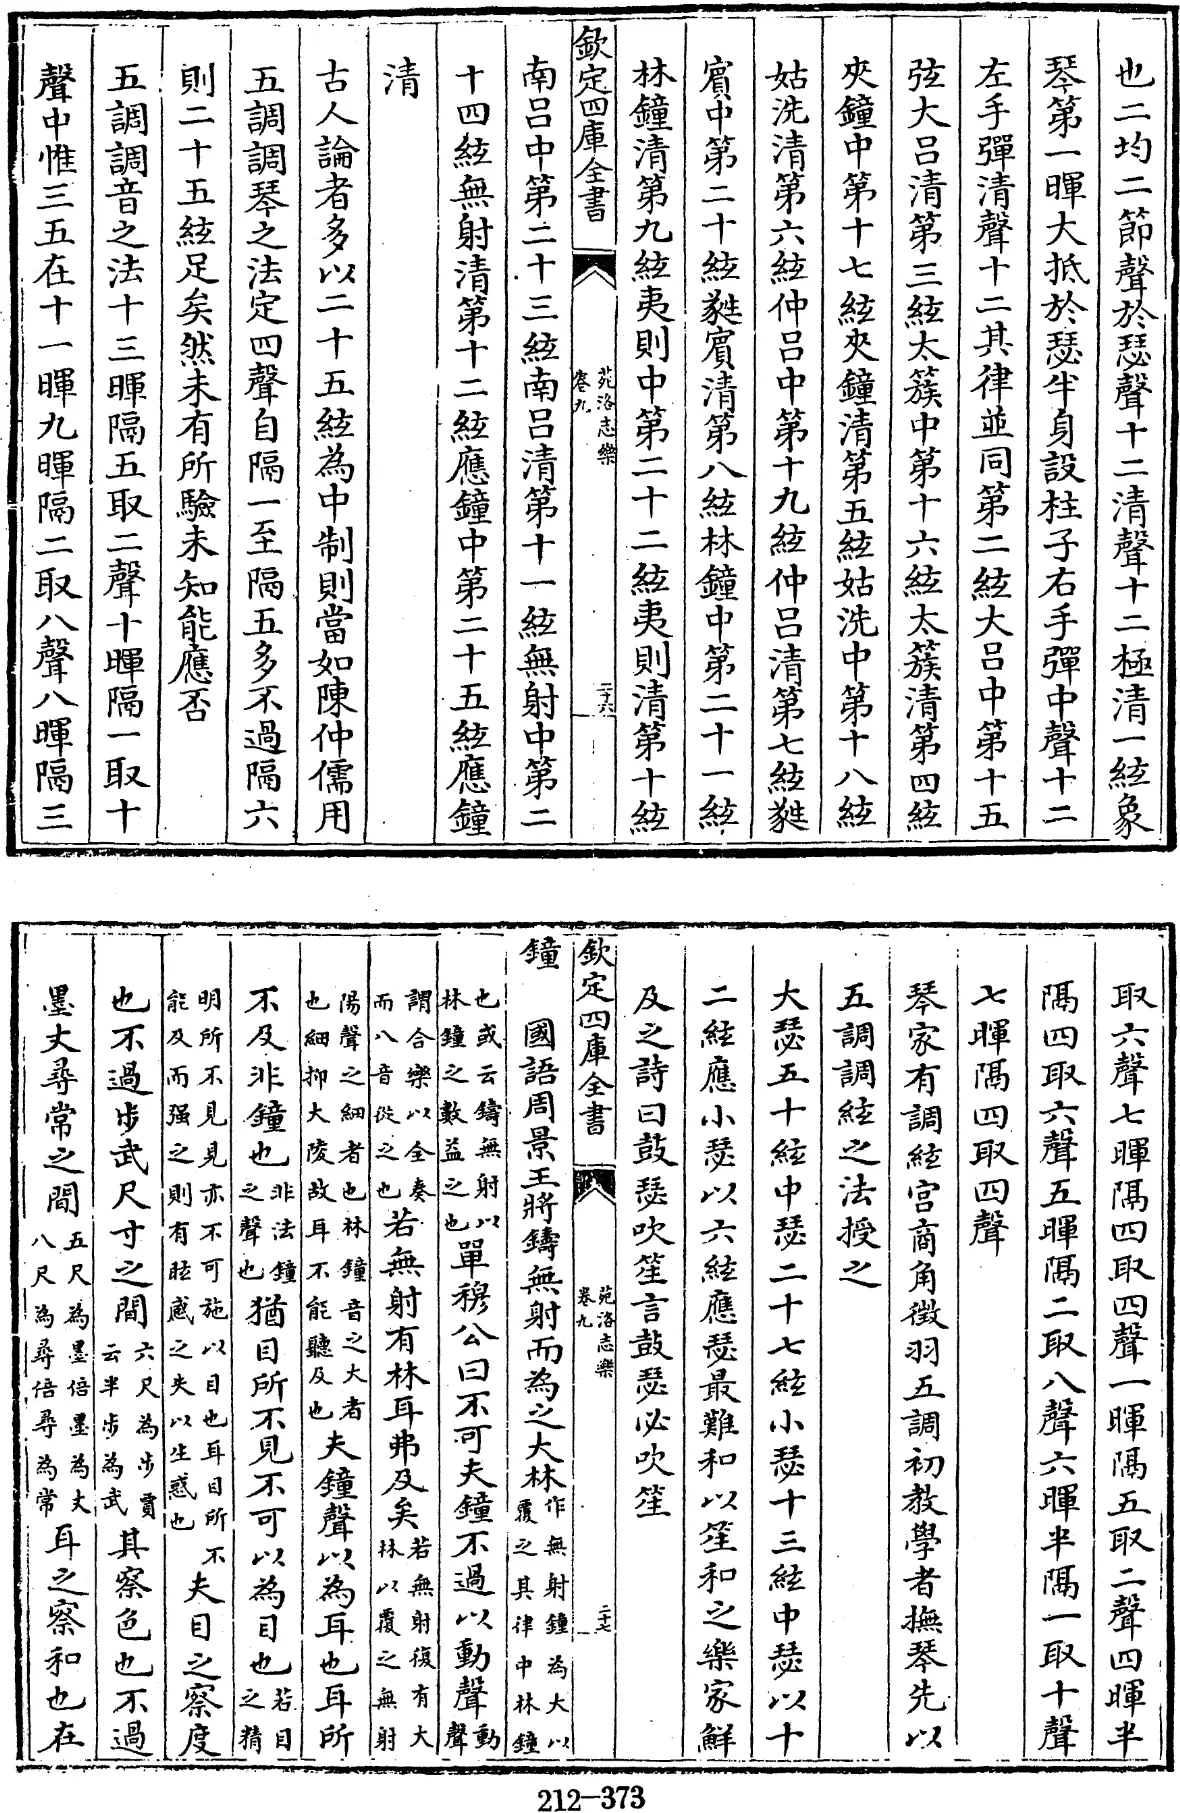 也二均二節聲於瑟聲十二清聲十二極清一絃象
琴第一暉大抵於瑟半身設柱子右手彈中聲十二
左手彈清聲十二其律並同第二絃大吕中第十五
弦大吕清第三絃太簇中第十六絃太簇清第四絃
夾鐘中第十七絃夾鐘清第五絃姑洗中第十八絃
姑洗清第六絃仲吕中第十九絃仲吕清第七絃蕤
賓中第二十絃蕤賓清第八絃林鐘中第二十一絃
林鐘清第九絃夷則中第二十二絃夷則清第十絃
欽定四庫全書 苑洛志樂 卷九 二十六
南吕中第二十三絃南吕清第十一絃無射中第二
十四絃無射清第十二絃應鐘中第二十五絃應鐘
清
古人論者多以二十五絃為中制則當如陳仲儒用
五調調琴之法定四聲自隔一至隔五多不過隔六
則二十五絃足矣然未有所驗未知能應否
五調調音之法十三暉隔五取二聲十暉隔一取十
聲中惟三五在十一暉九暉隔二取八聲八暉隔三
取六聲七暉隔四取四聲一暉隔五取二聲四暉半
隔四取六聲五暉隔二取八聲六暉半隔一取十聲
七暉隔四取四聲
琴家有調絃宫商角徴羽五調初教學者撫琴先以
五調調絃之法授之
大瑟五十絃中瑟二十七絃小瑟十三絃中瑟以十
二絃應小瑟以六絃應瑟最難和以笙和之樂家鮮
及之詩曰鼓瑟吹笙言鼓瑟必吹笙
欽定四庫全書 苑洛志樂 卷九 二十七
鐘 國語周景王將鑄無射而為之大林作無射鐘為大以覆之其律中林鐘
也或云鑄無射以林鐘之數益之也單穆公曰不可夫鐘不過以動聲動聲
謂合樂以全奏而八音從之也若無射有林耳弗及矣若無射復有大林以覆之無射
陽聲之細者也林鐘音之大者也細抑大陵故耳不能聽及也夫鐘聲以為耳也耳所
不及非鐘也非法鐘之聲也猶目所不見不可以為目也若目之精
明所不見見亦不可施以目也耳目所不能及而强之則有眩惑之失以生惑也夫目之察度
也不過步武尺寸之間六尺為步賈云半步為武其察色也不過
墨丈尋常之間五尺為墨倍墨為丈八尺為尋倍尋為常耳之察和也在
212—373